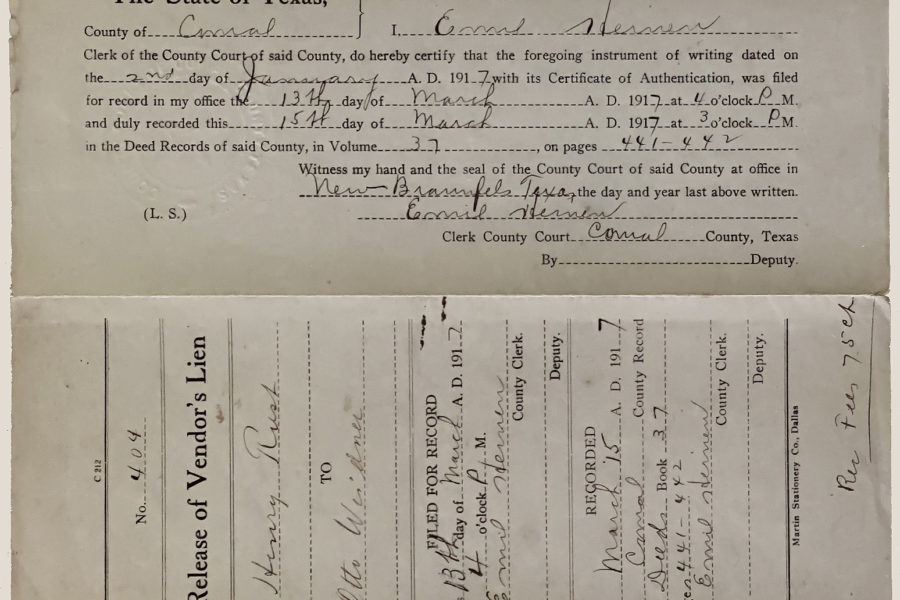 The State of Texas,
County of Comal I, Emil Heinen
Clerk of the County Court of said County, do hereby certify that the foregoing instrument of writing dated on
the 2nd day of January A. D. 1917 with its Certificate of Authentication, was filed
for record in my office the 13th day of March A. D. 1917 at 4 o'clock P M.
and duly recorded this 15th day of March A. D. 1917 at 3 o'clock P M.
in the Deed Records of said County, in Volume 37, on pages 441-442
Witness my hand and the seal of the County Court of said County at office in
New Braunfels Texas, the day and year last above written.
(L. S.) Emil Heinen
Clerk County Court Comal County, Texas
By Deputy.
C 212
No. 404
Release of Vendor's Lien
Henry Rust
TO
Otto Weidner
FILED FOR RECORD
13th day of March A. D. 1917
4 o'clock P M.
Emil Heinen
County Clerk.
Deputy.
RECORDED
March 15 A. D. 1917
Comal County Record
Deeds Book 37
441-442
Emil Heinen
County Clerk.
Deputy.
Martin Stationery Co., Dallas
Rec Fees 75 ch